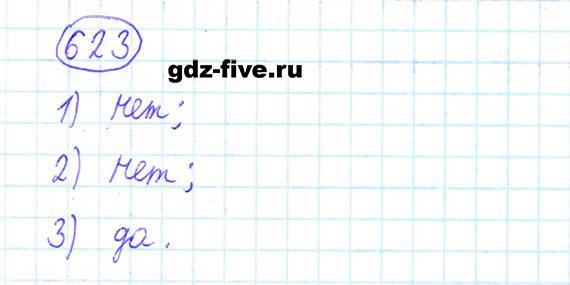 623
gdz-five.ru
1) нет;
2) нет;
3) да.